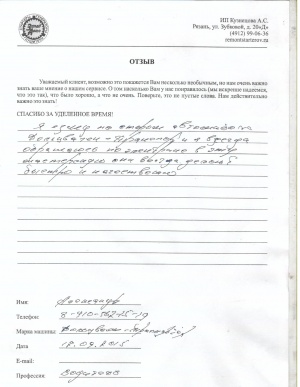 ИП Кузнецова А.С.
Рязань, ул. Зубковой, д. 20«Д»
(4912) 99-06-36
remontstarterov.ru
ОТЗЫВ
Уважаемый клиент, возможно это покажется Вам несколько необычным, но нам очень важно
знать ваше мнение о нашем сервисе. О том насколько Вам у нас понравилось (мы искренне надеемся,
что это так), что было хорошо, а что на очень. Поверьте, это не пустые слова. Нам действительно
важно это знать!
СПАСИБО ЗА УДЕЛЕННОЕ ВРЕМЯ!
Я езжу на
и я всегда
обращаюсь по в эту
они всегда делают
быстро и качественно
Имя: Александр
Телефон: 8-910-562-25-19
Марка машины: Фольксваген
Дата 18.09.2015
E-mail:
Профессия: Водитель